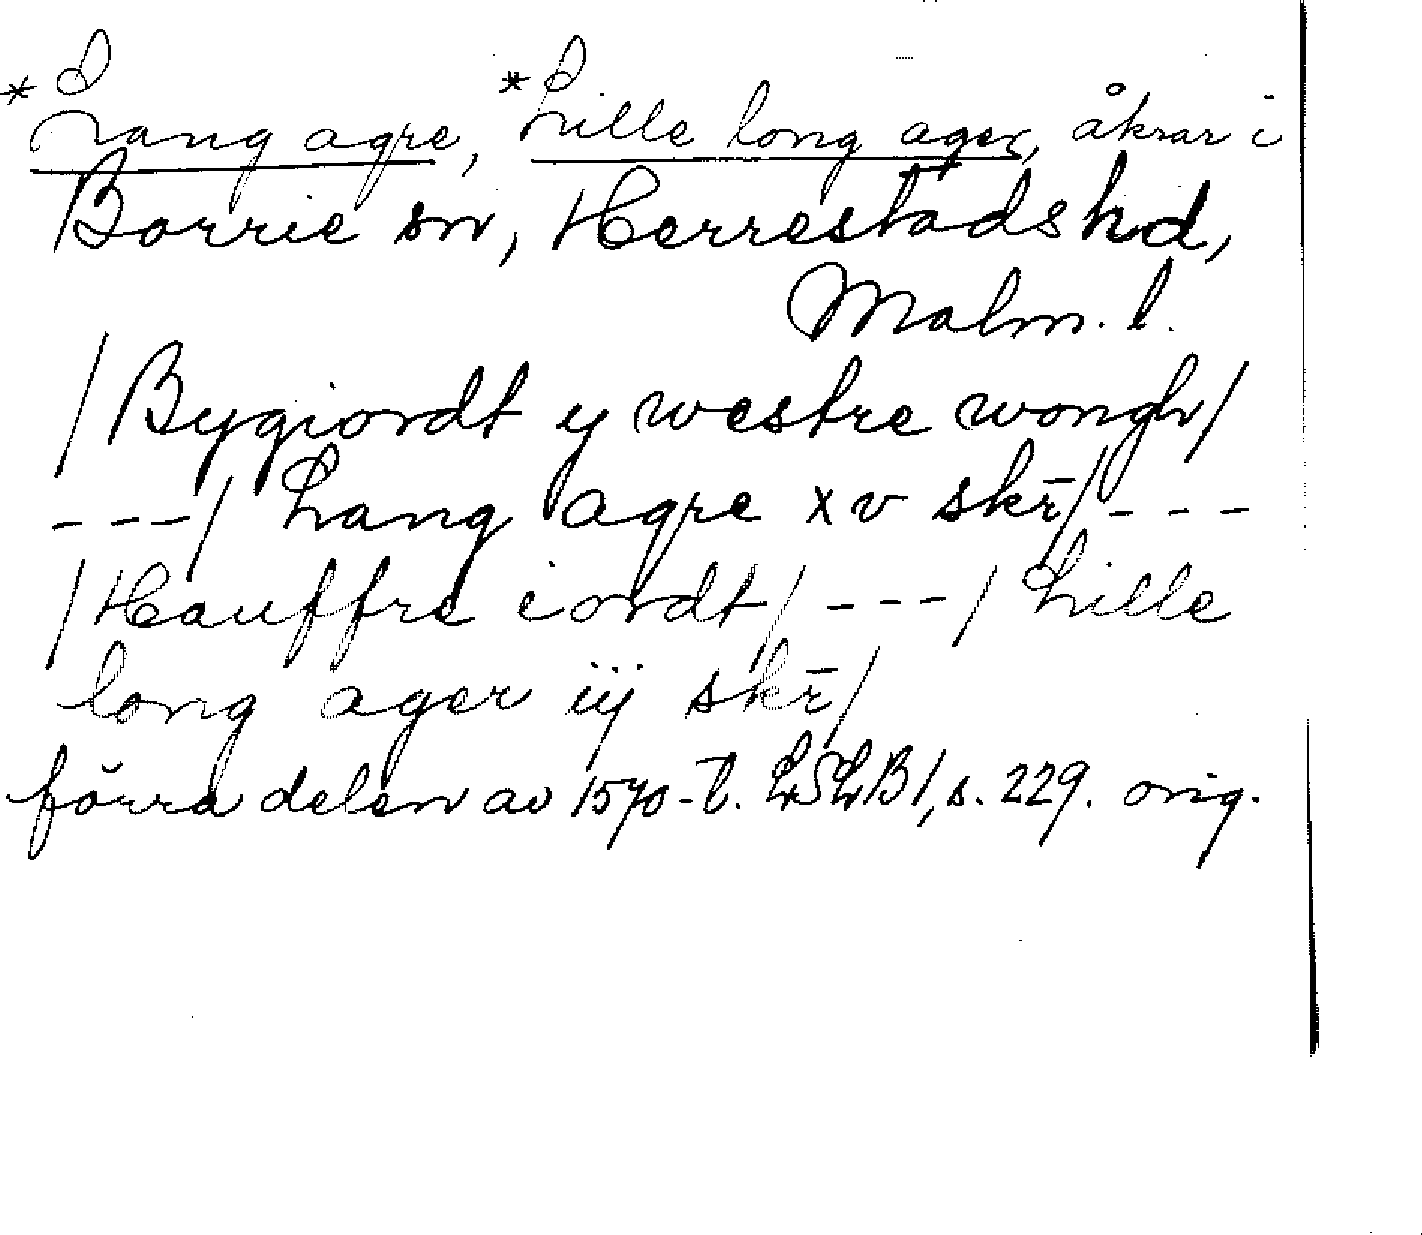 *Lang agre, *Lille long ager, åkrar i
Borrie sn, Herrestads hd,
Malm. l.
/Bygiordt y westre wongh/
---/ Lang agre xv skr̄/---
/Hauffre iordt/---/ Lille
long ager iij skr̄/
förra delen av 1570-t. LSLB1, s. 229. orig.